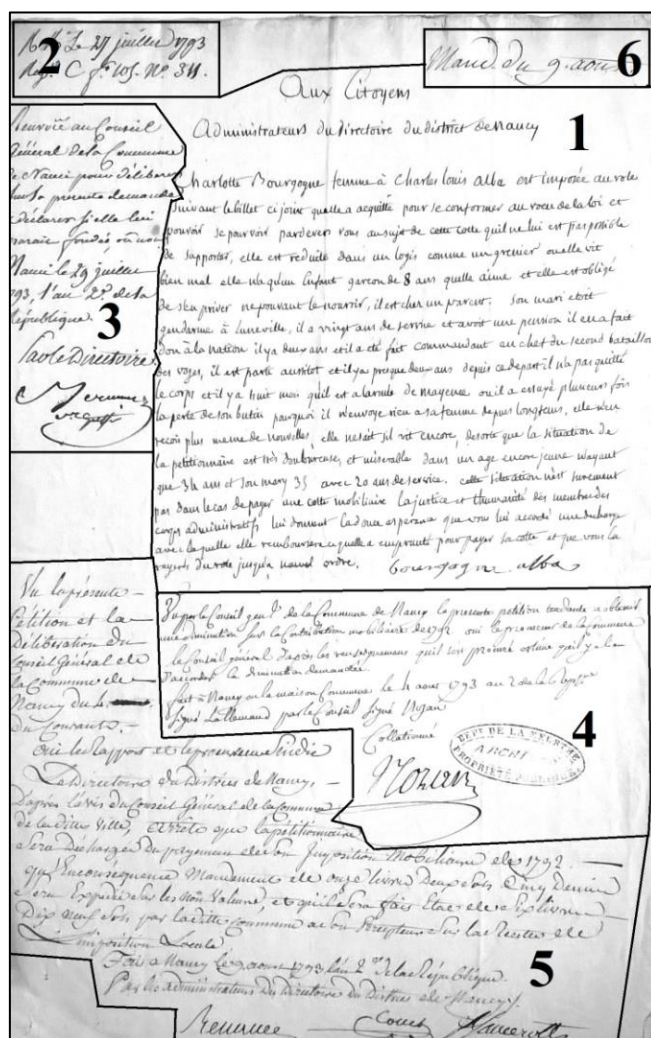 2
R. le 27 juillet 1793
Reg. C f.º 105. Nº 311.
6
Mand. du 9. aoust
Aux Citoyens
1
Administrateurs du directoire du district de Nancy
Charlotte Bourgogne femme à Charles Louis alba est imposée au role
suivant le billet ci joint quelle a acquitté pour se conformer au voeu de la loi et
pouvoir se pourvoir pardevers vous au sujet de cette cotte quil ne lui est pas possible
de supporter, elle est reduite dans un logis comme un grenier ou elle vit
bien mal elle na qu'un Enfant garcon de 8 ans quelle aime et elle est obligé
de s'en priver ne pouvant le nourrir, il est cher un parent. Son mari etoit
gendarme à luneville, il a vingt ans de service et avoit une pension il en a fait
don à la nation il y a deux ans et il a été fait commandant en chef du second bataillon
des voges, il est partie aussitot et il y a presque deux ans depuis ce depart il n'a pas quitté
le corps et il y a huit mois qu'il est a l'armée de mayence ou il a essuyé plusieurs fois
la perte de son butin pourquoi il n'envoye rien a sa femme depuis longtems, elle n'en
recois plus meme de nouvelles, elle ne sait sil vit encore, desorte que la situation de
la petitionnaire est très douloureuse, et miserable dans un age encore jeune n'ayant
que 34 ans et son mary 35 avec 20 ans de service. cette situation n'est surement
pas dans le cas de payer une cotte mobiliaire la justice et l'humanité des membres des
corps administratifs lui donnent la douce esperance que vous lui accordé une decharge
avec laquelle elle remboursera ce quelle a emprunté pour payer sa cotte et que vous la
rayerés du role jusqu'a nouvel ordre.
bourgogne alba
Renvoié au Conseil
Général de la Commune
de Nanci pour délibérer
sur la presente demande
declarer si elle lui
parait fondée ou non
Nanci le 29 juillet
1793, l'an 2e. de la
République.
3
Par le Directoire
Vu par le Conseil gen.l de la Commune de Nancy la presente petition tendante a obtenir
une diminution sur la Contribution mobiliaire de 1792. oui le procureur de la Commune
le Conseil général d'après les renseignemens quil a pris estime quil y a lieu
d'accorder la diminution demandée.
fait à Nancy en la maison Commune le 4 aout 1793 an 2 de la
signé Lallemand par le Conseil signé
Collationné
4
DEPT DE LA MEURTHE
ARCHI
PROPRIÉTÉ PUBLIQUE
Vu la présente
Pétition et la
Délibération du
Conseil Général de
la Commune de
Nancy du 4
du Courant.
oui le Rapport et le procureur Sindic
Le Directoire du District de Nancy,
D'après l'avis du Conseil Général de la Commune
de la ditte Ville, arrête que la pétitionnaire
Sera Déchargée Du payement de Son Imposition Mobiliaire de 1792.
qu'En conséquence Mandement de onze livres Deux Sols Cinq Deniers
Sera Expédié Sur les Non Valeurs, et qu'il Sera fait État de Six livres
Dix neuf Sols par la ditte Commune a son Percepteur Sur la Recette de
L'imposition Locale
5
Fait a Nancy le 9 aout 1793 L'an 2e. de la République.
Par les administrateurs Du Directoire Du District de Nancy.